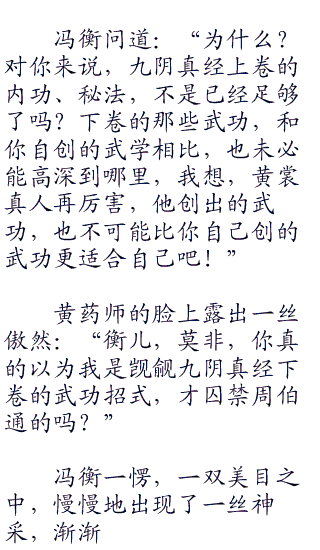 冯衡问道：“为什么？
对你来说，九阴真经上卷的
内功、秘法，不是已经足够
了吗？下卷的那些武功，和
你自创的武学相比，也未必
能高深到哪里，我想，黄裳
真人再厉害，他创出的武
功，也不可能比你自己创的
武功更适合自己吧！”
黄药师的脸上露出一丝
傲然：“衡儿，莫非，你真
的以为我是觊觎九阴真经下
卷的武功招式，才囚禁周伯
通的吗？”
冯衡一愣，一双美目之
中，慢慢地出现了一丝神
采，渐渐